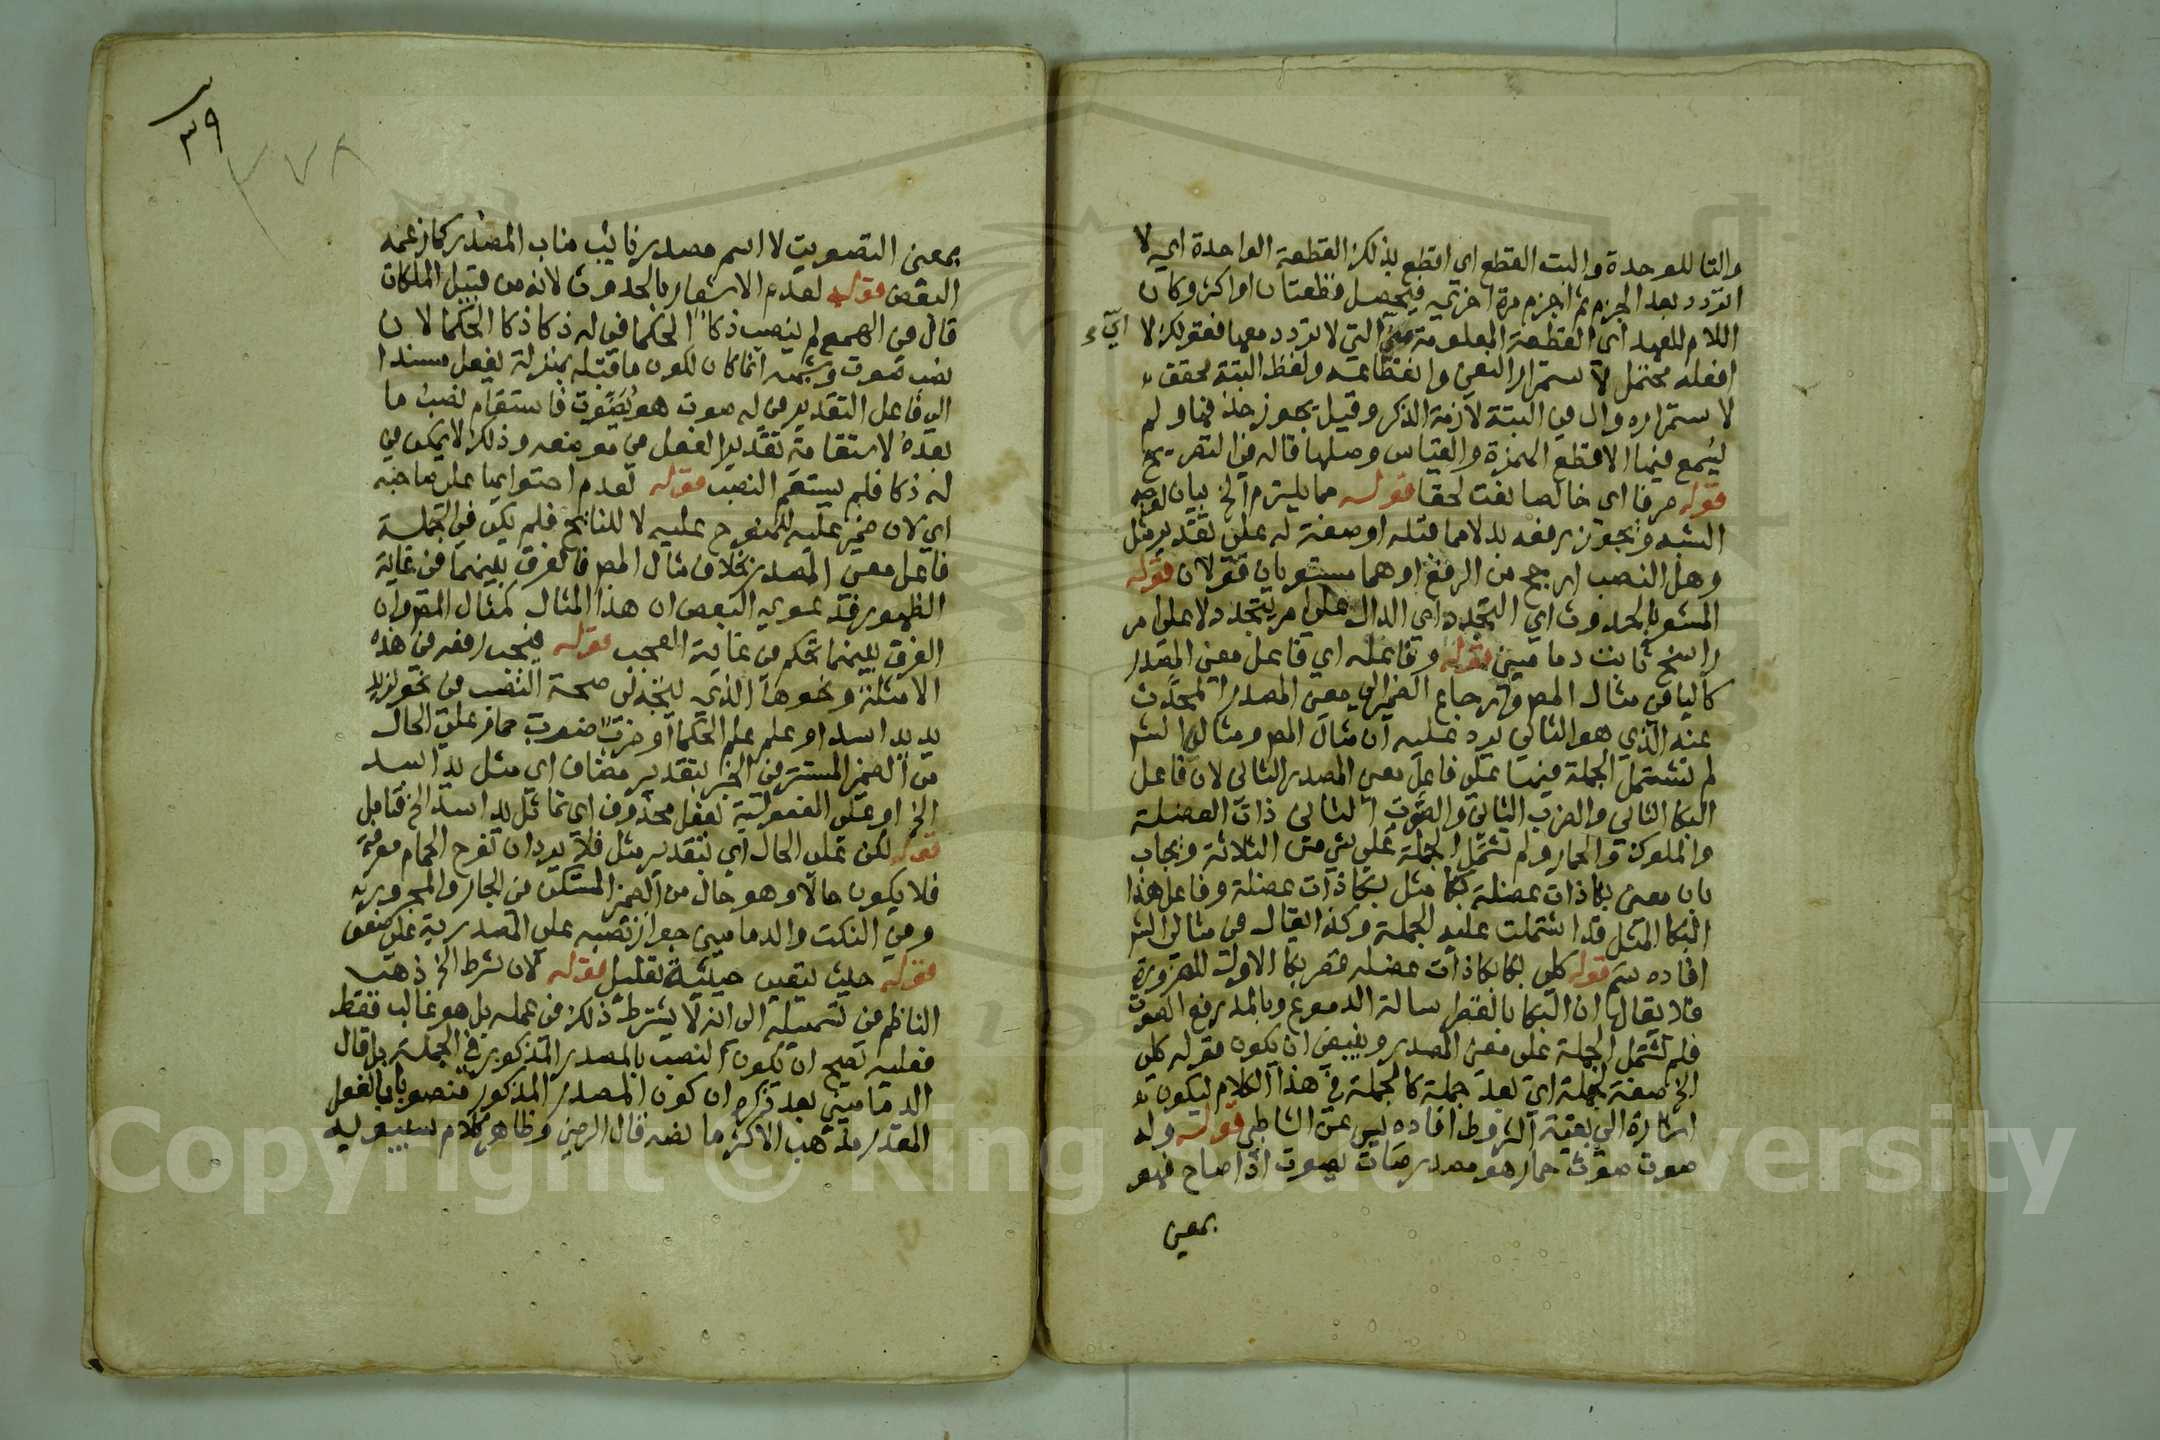 والتا للوحدة والبت القطع اى اقطع بذلك القطعة الواحدة اي لا
اتردد بعد الجزم ثم اجزم مرة اخرى فيحصل قطعتان او اكثر وكان
اللام للعهد اى القطعة المعلومة مني التي لا تردد معها فقولك لا
افعله محتمل لاستمرار النفي وانقطاعه ولفظ البتة محقق
لاستمراره وال في البتة لازمة الذكر وقيل يجوز حذفها ولم
يسمع فيها الا قطع الهمزة والقياس وصلها قاله في التصريح
قوله صرفا اى خالصا نعت لحقا قوله مما يلتزم الخ بيان لوجه
الشبه ويجوز رفعه بدلا مما قبله او صفة له على تقدير مثل
وهل النصب ارجح من الرفع او هما مستويان قولان قوله
المشعر بالحدوث اي التجدد اي الدال على امر يتجدد لا على امر
راسخ ثابت دماميني قوله وفاعله اي فاعل معنى المصدر
كاليا في مثال المص وارجاع الضمير الى معنى المصدر المحدث
عنه الذي هو الثاني يرد عليه ان مثال المص ومثالي الشم
لم تشتمل الجملة فيها على فاعل معنى المصدر الثاني لان فاعل
البكا الثاني والضرب الثاني والصوت الثاني ذات العضلة
والملوك والحمار ولم تشتمل الجملة على شي من الثلاثة ويجاب
بان معنى بكا ذات عضلة بكا مثل بكا ذات عضلة وفاعل هذا
البكا المثل قد اشتملت عليه الجملة وكذا يقال في مثالي الشم
افاده سم قوله كلى بكا بكا ذات عضله قصر بكا الاول للضرورة
فلا يقال ان البكا بالقصر اسالة الدموع وبالمد رفع الصوت
فلم تشتمل الجملة على معنى المصدر وينبغي ان يكون قوله كلى
الخ صفة لجملة اي بعد جملة كالجملة في هذا الكلام ليكون
اشارة الي بقية الشروط افاده يس عن الشاطبي قوله وله
صوت صوت حمار هو مصدر صات يصوت اذا صاح فهو
بمعنى
٣٩
٣٧٨
بمعنى التصويت لا اسم مصدر نائب مناب المصدر كما زعمه
البعض قوله لعدم الاشعار بالحدوث لانه من قبيل الملكات
قال في الهمع لم ينصب ذكاء الحكما في له ذكا ذكا الحكما لان
نصب صوت وشبهه انما كان لكون ما قبله بمنزلة يفعل مسندا
الى فاعل التقدير في له صوت هو يصوت فاستقام نصب ما
بعده لاستقامة تقدير الفعل في موضعه وذلك لا يمكن في
له ذكا فلم يستقم النصب قوله لعدم احتوايها على صاحبه
اي لان ضمير عليه للمنوح عليه لا للنايح فلم يكن في الجملة
فاعل معنى المصدر بخلاف مثال المص فالفرق بينهما في غاية
الظهور فقد عوي البعض ان هذا المثال كمثال المص وان
الفرق بينهما تحكم في غاية العجب قوله فيجب رفعه في هذه
الامثلة ونحوها الذي يتجه لي صحة النصب في نحو لزيد
يد يد اسد او علم علم الحكما او ضرب صوت حمار على الحال
من الضمير المستتر في الخبر بتقدير مضاف اي مثل يد اسد
الخ او على المفعولية لفعل محذوف اي تماثل يد اسد الخ فتامل
قوله لكن على الحال اي بتقدير مثل فلا يرد ان نوح الحمام معرفة
فلا يكون حالا وهو حال من الضمير المستكن في الجار والمجرور
وفي النكت والدماميني جواز نصبه على المصدرية على ضعف
قوله حيث يتعين حيثية تعليل قوله لان شرط الخ ذهب
الناظم في تسهيله الى انه لا يشترط ذلك في عمله بل هو غالب فقط
فعليه تصح ان يكون النصب بالمصدر المذكور في الجملة بل قال
الدماميني بعد ذكره ان كون المصدر المذكور منصوبا بالفعل
المقدر مذهب الاكثر ما نصه قال الرضي وظاهر كلام سيبويه
Copyright © King Saud University